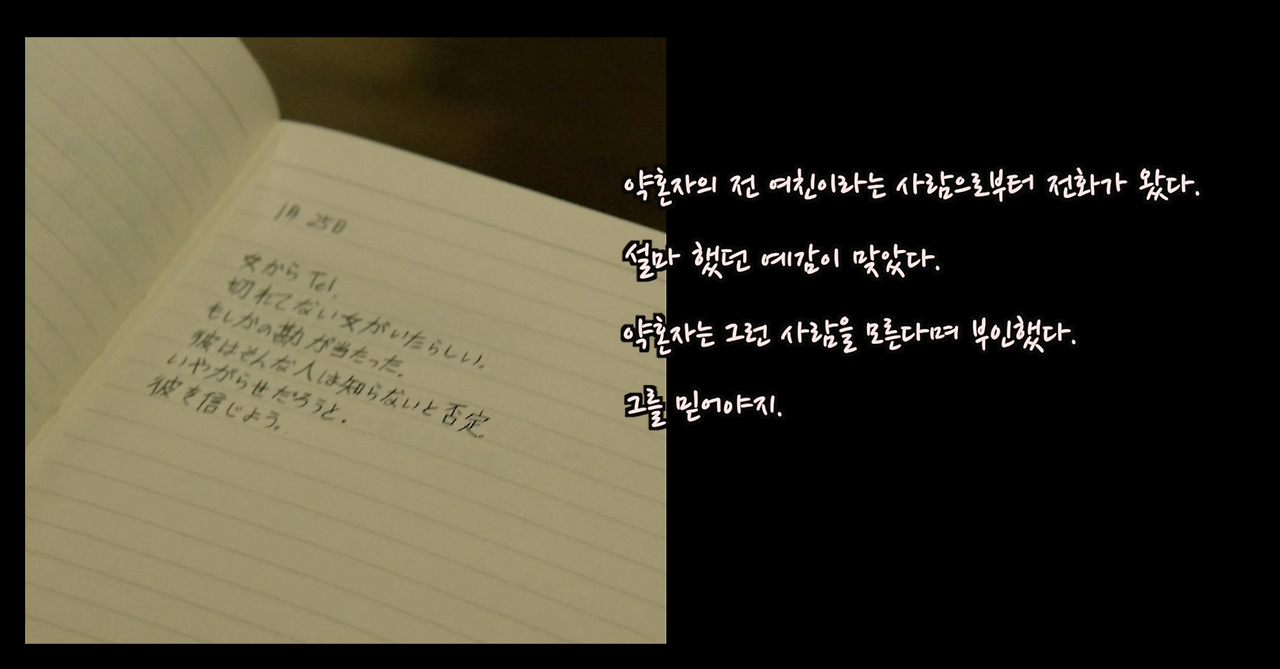 1月 25日
女からTel.
切れてない女がいたらしい。
もしかの勘が当たった。
彼はそんな人は知らないと否定
いやがらせだろうと.
彼を信じよう.
약혼자의 전 여친이라는 사람으로부터 전화가 왔다.
설마 했던 예감이 맞았다.
약혼자는 그런 사람을 모른다며 부인했다.
그를 믿어야지.